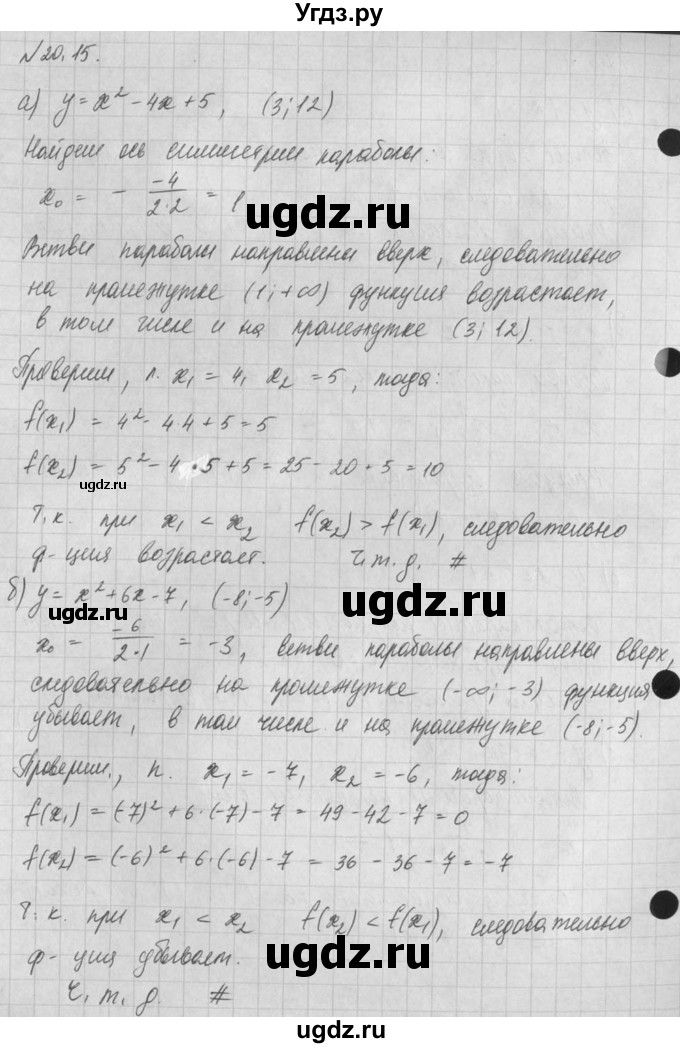 Угдз.ру
№20.15.
а) y = x² - 4x + 5, (3; 12)
Найдем ось симметрии параболы:
x₀ = - -4/2·2 = 1
ugdz.ru
Ветви параболы направлена вверх, следовательно
на промежутке (1; +∞) функция возрастает,
в том числе и на промежутке (3; 12).
ugdz.ru
Проверим, п. x₁ = 4, x₂ = 5, тогда:
f(x₁) = 4² - 4·4 + 5 = 5
f(x₂) = 5² - 4·5 + 5 = 25 - 20 + 5 = 10
ugdz.ru
Т.к. при x₁ < x₂ f(x₂) > f(x₁), следовательно
ф-ция возрастает. Ч.т.д. #
ugdz.ru
б) y = x² + 6x - 7, (-8; -5)
ugdz.ru
ugdz.ru
x₀ = -6/2·1 = -3, ветви параболы направлены вверх,
следовательно на промежутке (-∞; -3) функция
убывает, в том числе и на промежутке (-8; -5).
ugdz.ru
Проверим, п. x₁ = -7, x₂ = -6, тогда:
f(x₁) = (-7)² + 6·(-7) - 7 = 49 - 42 - 7 = 0
f(x₂) = (-6)² + 6·(-6) - 7 = 36 - 36 - 7 = -7
ugdz.ru
ugdz.ru
Т.к. при x₁ < x₂ f(x₂) < f(x₁), следовательно
ф-ция убывает.
Ч.т.д. #
ugdz.ru
ugdz.ru